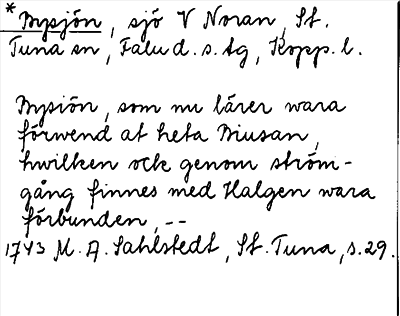 *Mysjön, sjö V Noran, St.
Tuna sn, Falu d.s. tg, Kopp. l.
Mysiön, som nu lärer wara
förwend at heta Miusan,
hwilken ock genom ström-
gång finnes med Halgen wara
förbunden, --
1743 M. A. Sahlstedt, St. Tuna, s. 29.